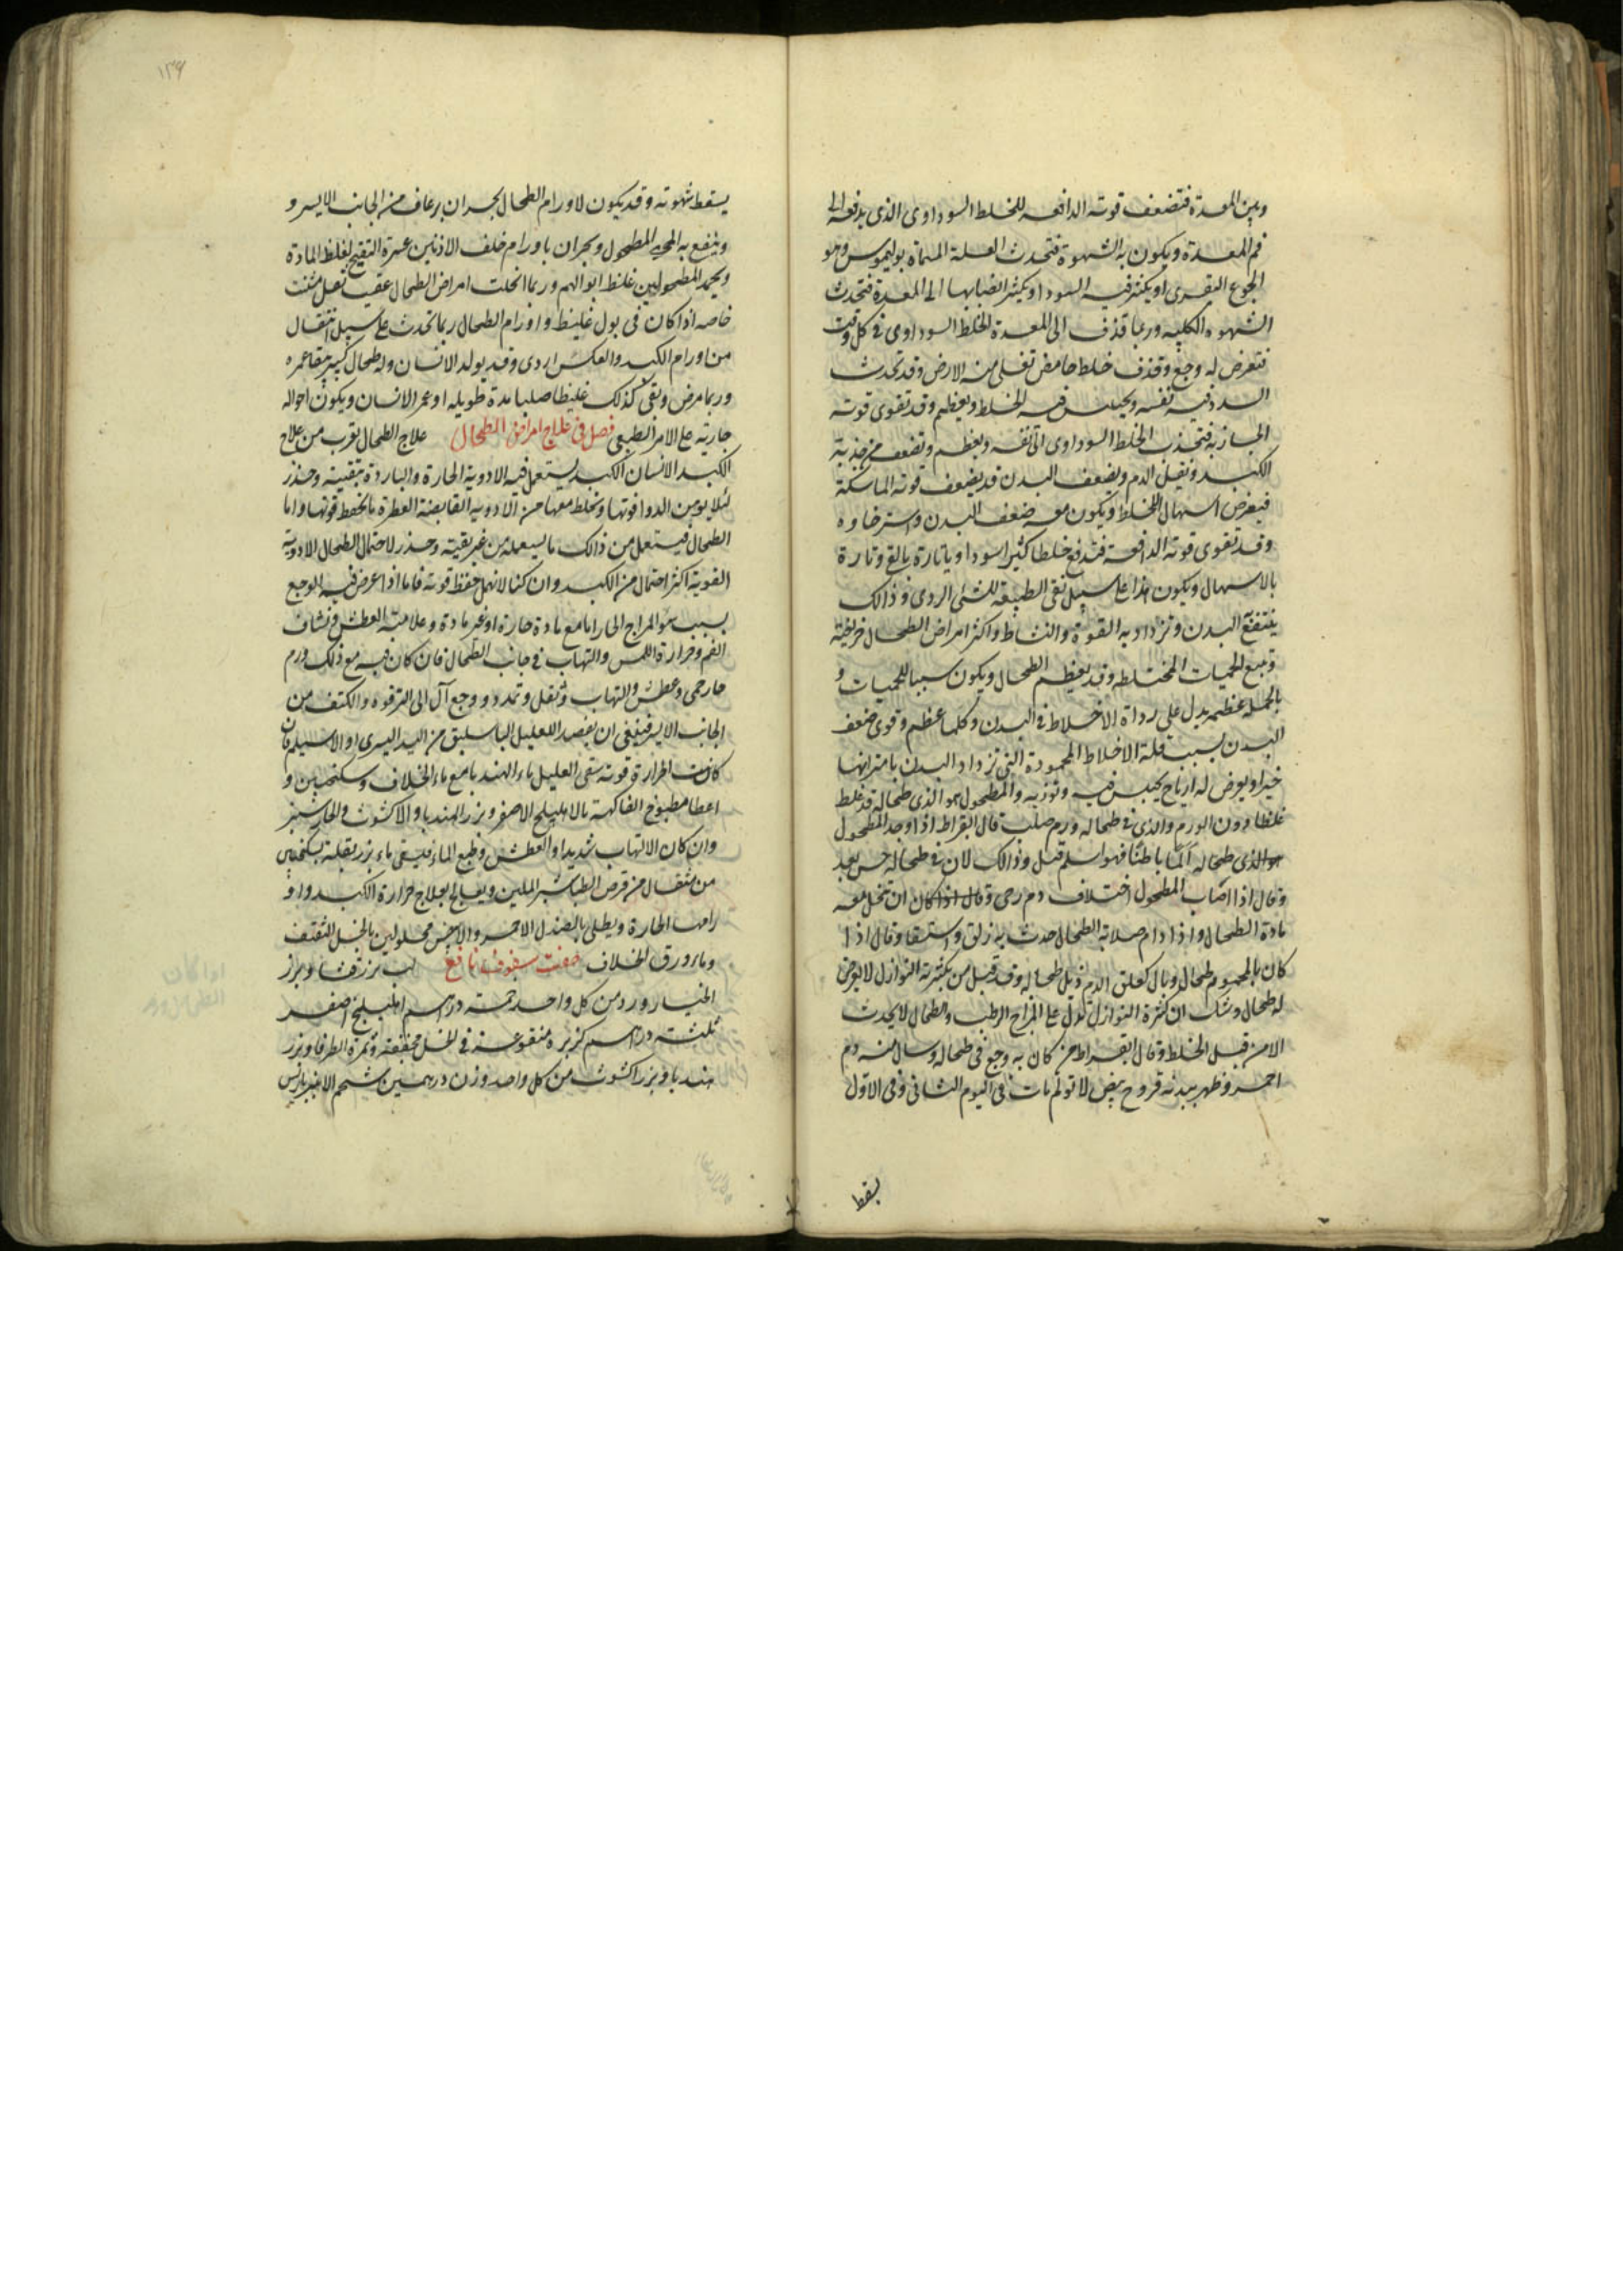 وبين المعدة فتضعف قوته الدافعه للخلط السوداوى الذى يدفعه الى
فم المعدة ويكون به الشهوة فتحدث العلة المسماة بوليموس وهو
الجوع البقرى او يكثر فيه السودا ويكثر انصبابها الى المعدة فتحدث
الشهوه الكلبيه وربما قذف الى المعدة الخلط السوداوى فى كل وقت
فتعرض له وجع وقذف خلط حامض تغلى منه الارض وقد تحدث
السدد فيه نفسه ويحتبس فيه الخلط ويعظم وقد تقوى قوته
الجاذبه فتجذب الخلط السوداوى الى نفسه ويعظم وتضعف من جذبة
الكبد ويقل الدم ويضعف البدن قد يضعف قوته الماسكة
فيعرض اسهال الخلط ويكون معه ضعف البدن واسترخاوه
وقد تقوى قوته الدافعة فتدفع خلطا كثيرا سوداويا تارة بالقى وتارة
بالاسهال ويكون هذا على سبيل نقى الطبيعه للشى الردى وذالك
ينتفع البدن وتزداد به القوة والنشاط واكثر امراض الطحال خريفية
وتتبع الحميات المختلطه وقد يعظم الطحال ويكون سببا للحميات و
بالجمله عظمه يدل على رداة الاخلاط فى البدن وكلما عظم وقوى ضعف
البدن بسبب قلة الاخلاط المحمودة التى تزداد البدن بامتزاجها
خيرا ويعرض له ارياح يحتبس فيه وتوذيه والمطحول هو الذى طحاله قد غلظ
غلظا دون الورم والذى فى طحاله ورم صلب قال ابقراط اذا وجد المطحول
الذى طحاله الما باطنا فهو اسلم قيل وذالك لان فى طحاله حس بعد
وقال اذا اصاب المطحول اختلاف دم رجى وقال اذا كان ان تنحل معه
مادة الطحال واذا دام صلابة الطحال حدث به زلق واستسقا وقال اذا
كان بالمحموم طحال وبال كعلق الدم ذبل طحاله وقد قيل من يكثر به النوازل لا يعرض
له طحال وشك ان كثرة النوازل تدل على المزاج الرطب والطحال لا يحدث
الا من قبل الخلط وقال ابقراط من كان به وجع فى طحاله وسال منه دم
احمر وظهر ببدنه قروح بيض لا تولم مات فى اليوم الثانى وفى الاول
يسقط
١٣٤
يسقط شهوته وقد يكون لاورام الطحال بحران برعاف من الجانب الايسر و
وينفع به المحى المطحول وبحران باورام خلف الاذنين عسرة التقيح لغلظ المادة
ويحمد المطحولين غلظ ابوالهم وربما انحلت امراض الطحال عقيب
خاصه اذا كان فى بول غليظ واورام الطحال ربما تحدث على سبيل انتقال
من اورام الكبد والعكس اردى وقد يولد الانسان وله طحال كبير يبقا عمره
وربما مرض وبقى كذلك غليظا صلبا مدة طويله او عمر الانسان ويكون احواله
جارية على الامر الطبيعى فصل فى علاج امراض الطحال علاج الطحال يقرب من علاج
الكبد الا نسان الكبد يستعمل فيه الادوية الحارة والباردة بتقيته وحذر
لئلا يوهن الدوا قوتها ونخلط معها من الادويه القابضة العطرة ما تحفظ قوتها واما
الطحال فيستعمل من ذالك ما يستعمله من غير بقيته وحذر لاحتمال الطحال الادوية
القوية اكثر احتمال من الكبد وان كنا لا نهمل حفظ قوته فاما اذا عرض فيه الوجع
بسبب سو المزاج الحار اما مع مادة حارة او غير مادة وعلامته العطش ونشاف
الفم وحرارة اللمس والتهاب فى جانب الطحال فان كان فيه مع ذلك ورم
حار حمى وعطش والتهاب وثقل وتمدد ووجع آل الى الترقوه والكتف من
الجانب الايسر فينبغى ان يفصد العليل الباسليق من اليد اليسرى او الاسيلم فان
كانت الحرارة قويه سقى العليل ماء الهندبا مع ماء الخلاف وسكنجبين و
اعطا مطبوخ الفاكهة بالاهليلج الاصفر وبزر الهندبا والاكشوث والخيارشنبر
وان كان الالتهاب شديدا والعطش وطبع الماء فليسقى ماء بزر بقلة بسكنجبين
من مثقال من قرص الطباشير الملين ويعالج بعلاج حرارة الكبد واو
رامها الحارة ويطلى بالصندل الاحمر والابيض محلولين بالخل الثقيف
وماء ورق الخلاف صفت سفوف نافع لب بزر قثا وبزر
الخيار وورد من كل واحد خمسة دراهم اهليلج اصفر
ثلثة دراهم كزبرة منقوعة فى الخل مجففة وثمرة الطرفا وبزر
هندبا وبزر اكشوث من كل واحد وزن درهمين شحم الانبرباريس